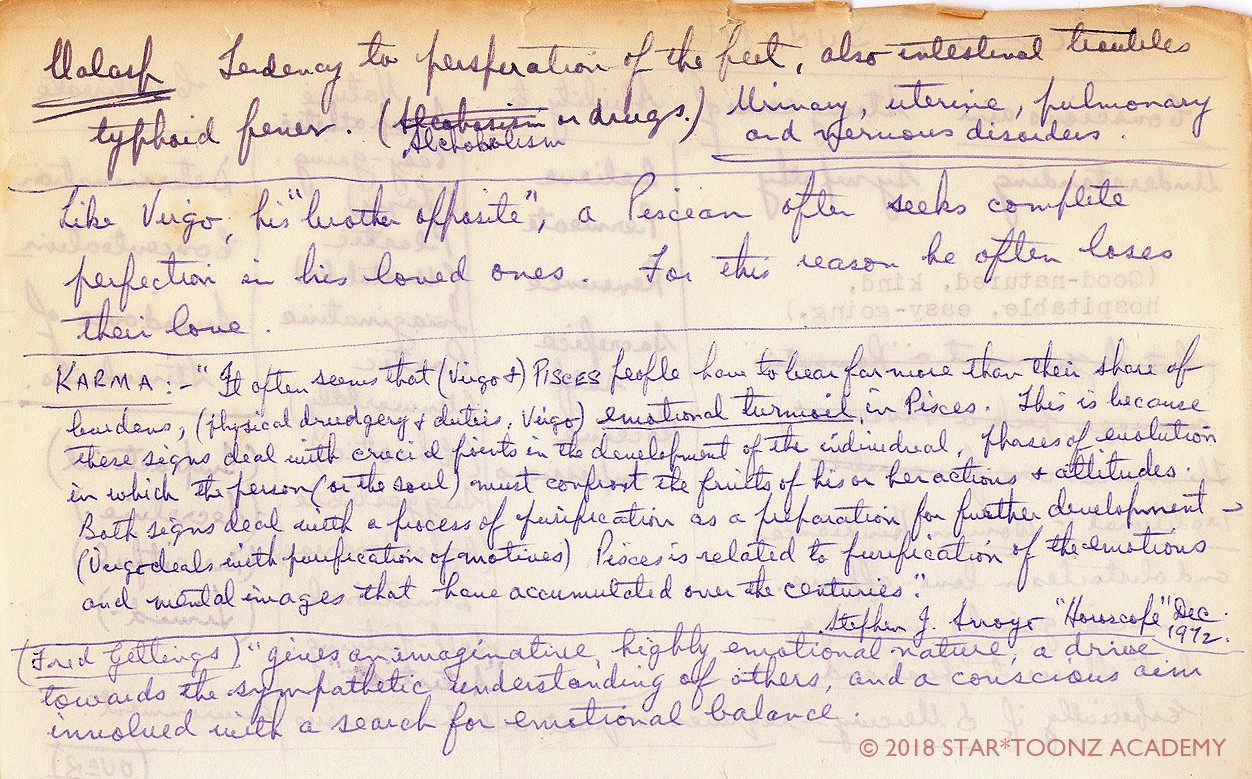 Malasp Tendency to persperation of the feet, also intestinal troubles
typhoid fever. (Alcohosism or drugs.) Urinary, uterine, pulmonary
Alchoholism and nervous disorders.
Like Virgo, his "brother opposite", a Piscean often seeks complete
perfection in his loved ones. For this reason he often loses
their love.
KARMA:- "It often seems that (Virgo &) PISCES people have to bear far more than their share of
burdens; (physical drudgery & duties, Virgo) emotional turmoil in Pisces. This is because
these signs deal with crucial points in the development of the individual, phases of evolution
in which the person (or the soul) must confront the fruits of his or her actions & attitudes.
Both signs deal with a process of purification as a preparation for further development -
(Virgo deals with purification of motives) Pisces is related to purification of the emotions
and mental images that have accumulated over the centuries."
Stephen J. Arroyo "Horoscope" Dec.
1972.
(Fred Gettings) "gives an imaginative, highly emotional nature, a drive
towards the sympathetic understanding of others, and a conscious aim
involved with a search for emotional balance.
(Good-natured, kind,
hospitable, easy-going.)
(OVER)
© 2018 STAR*TOONZ ACADEMY